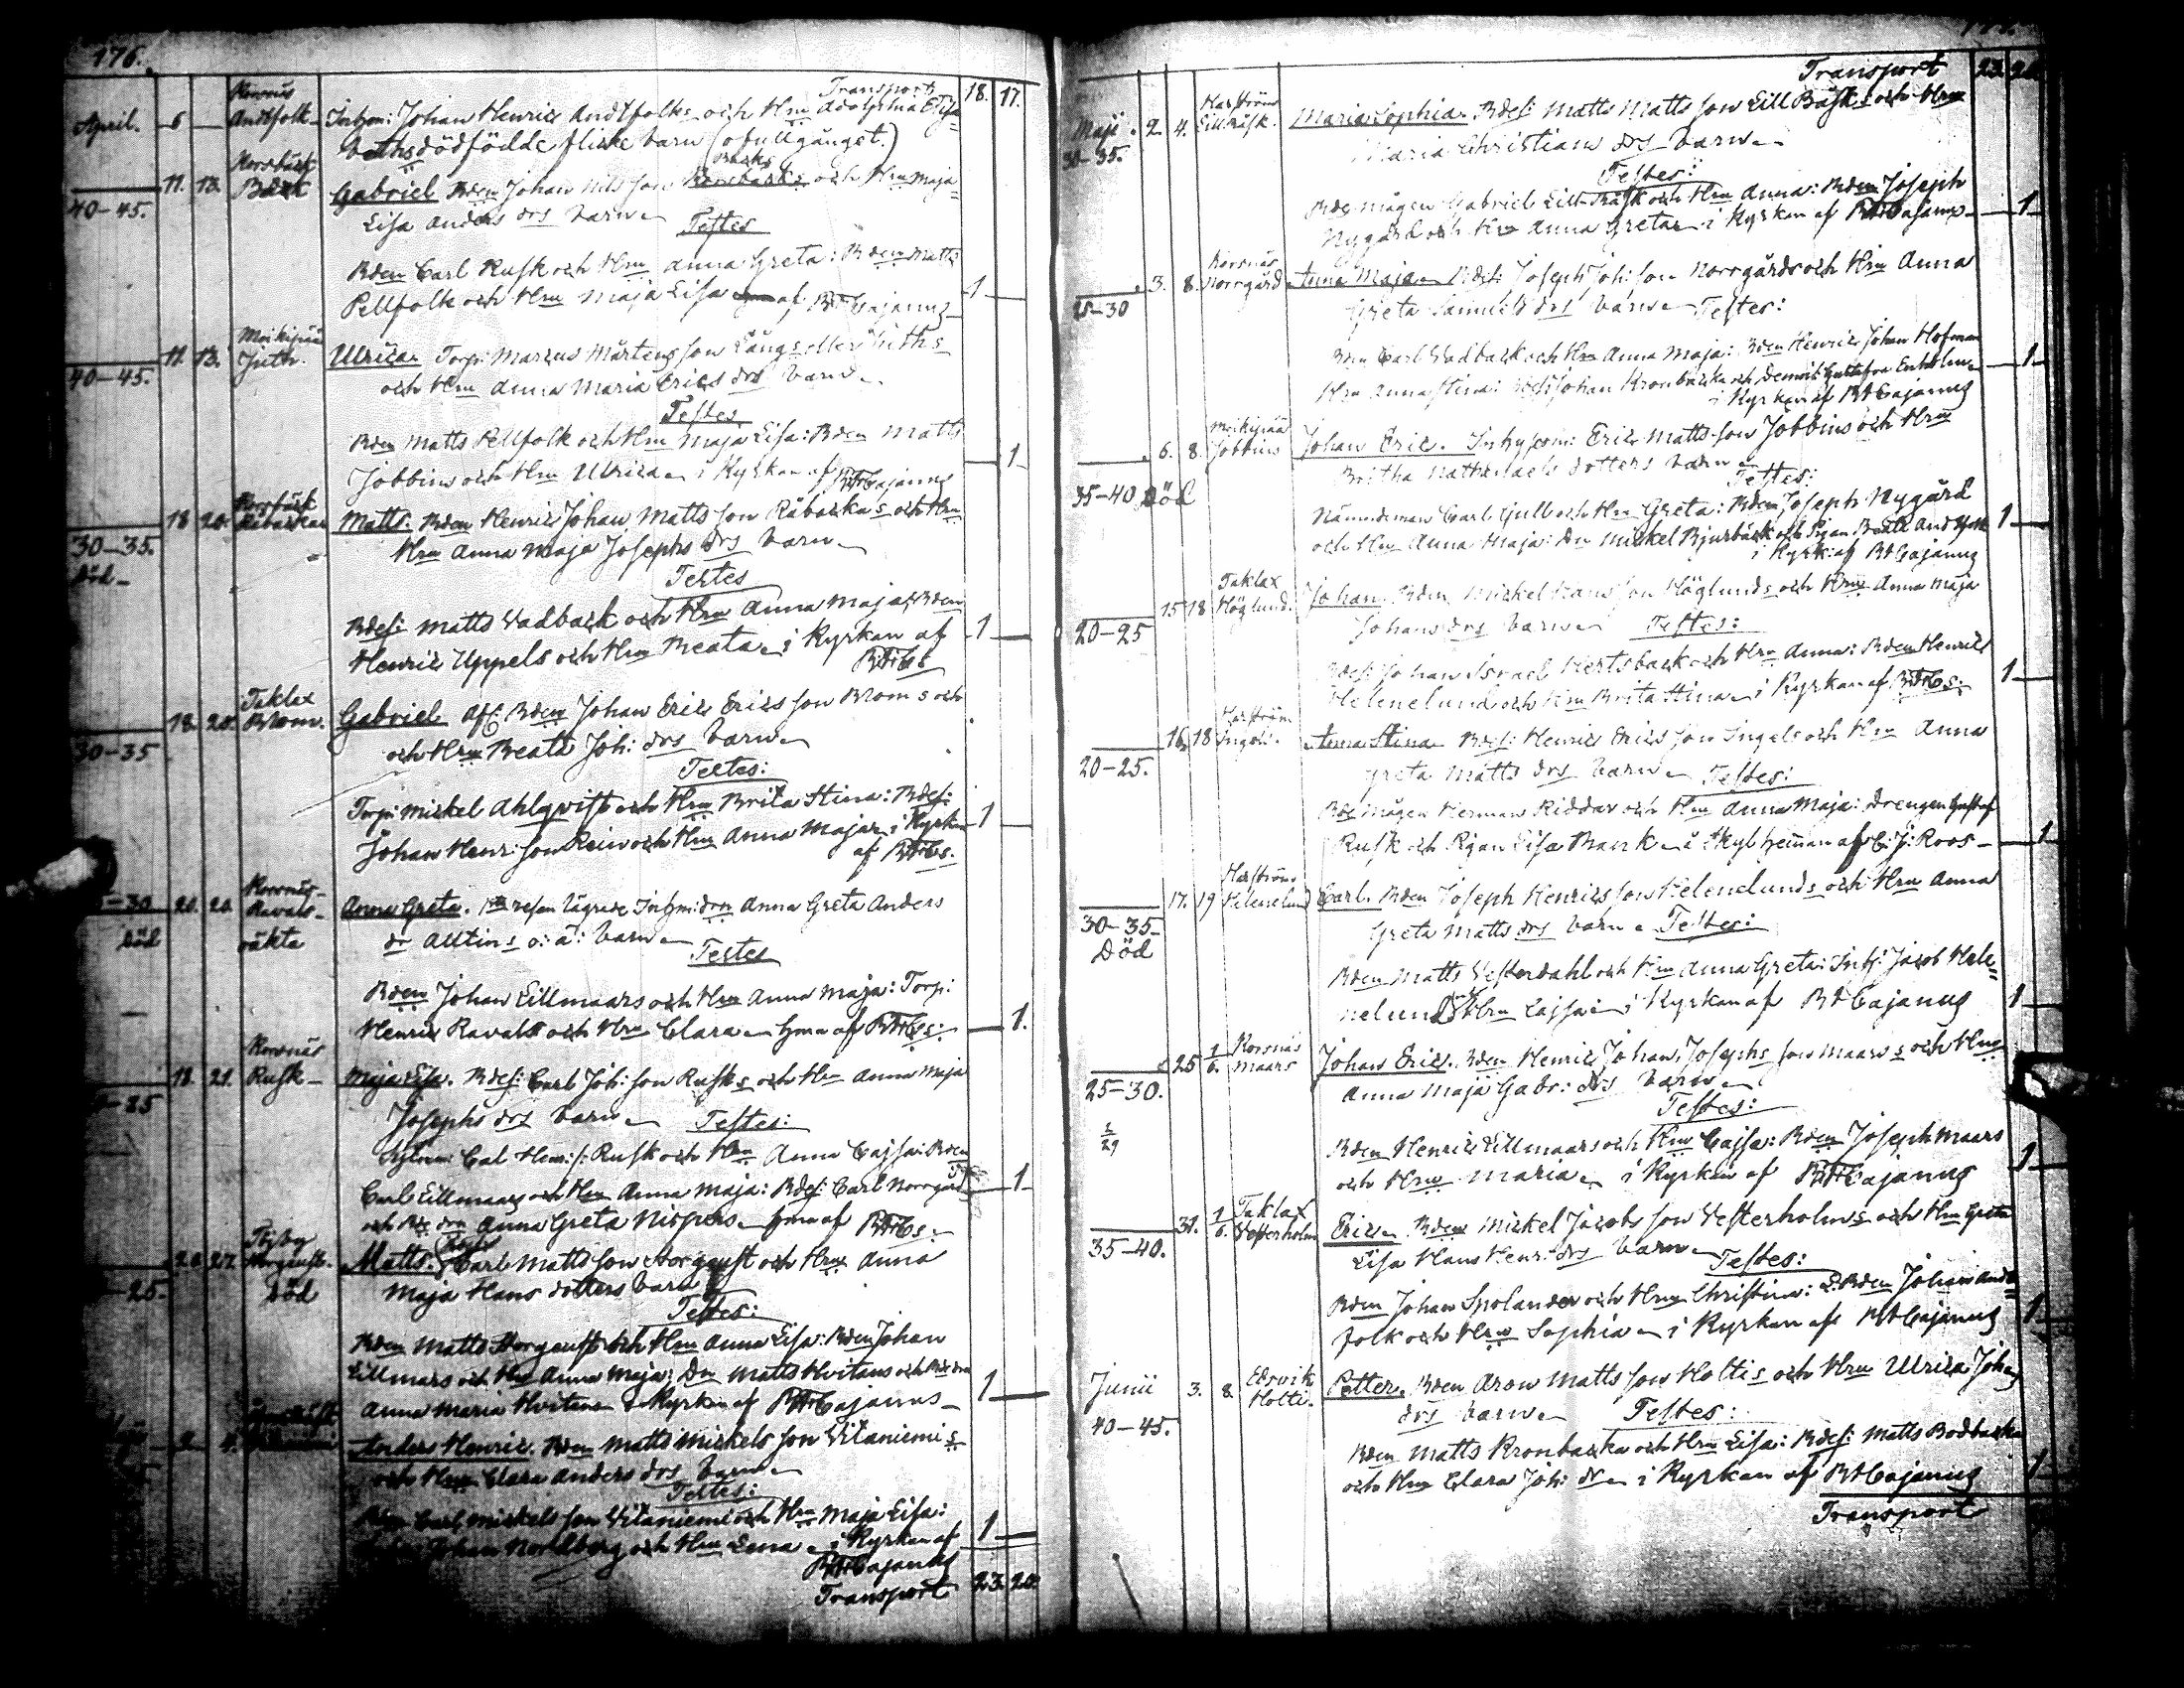 176.
Transport 18. 17.
April. 6 Korsnäs Andtfolk Inhm: Johan Henric Andtfolks och Hru Adolphina Elisa
beths dödfödde flicke barn (ofullgånget.)
11. 13. Korsbäck Bäck Gabriel Bden Johan Nils son Korsbäcks Bäcks och Hru Maja
40-45. Lisa Anders drs barn
Testes
Bden Carl Rusk och Hru Anna Greta: Bden Matts
Pellfolk och Hru Maja Lisa af BHCajanus 1
11. 13. Moikipää Juth. Ulrica Torp: Marcus Mårtens son Långs eller Juths
40-45. och Hru Anna Maria Erics drs barn
Testes
Bden Matts Pellfolk och Hru Maja Lisa: Bden Matts
Jobbins och Hru Ulrica i Kyrkan af BHCajanus 1
18 20. Korsbäck Råbackas Matts. Bden Henric Johan Matts son Råbackas och Hru
30-35. Hru Anna Maja Josephs drs barn
Död
Testes
Bdes: Matts Vadback och Hru Anna Maja: Bden 1
Henric Uppels och Hru Beata i Kyrkan af
BHCs
18. 20. Taklax Blom. Gabriel Bden Johan Eric Erics son Bloms och
30-35 och Hru Beata Joh: drs barn
Testes:
Torp: Mickel Ahlqvist och Hru Brita Stina: Bdes:
Johan Henr: son Rein och Hru Anna Maja i Kyrkan 1
af BHCs.
20. 20. Korsnäs Ravals Anna Greta. resan lägrade Inhm: drn Anna Greta Anders
Död oäkta dr Alltins o: ä: barn
Testes
Bden Johan Lillmaars och Hru Anna Maja: Torp:
Henric Ravals och Hru Clara hma af BHCs: 1.
18. 21. Korsnäs Rusk Maja Lisa. Bdes: Carl Joh: son Rusks och Hru Anna Maja
25 Josephs drs barn Testes:
Carl Henr: s: Rusk och Hru Anna Cajsa: Bden
Carl Lillmaars och Hru Anna Maja: Bdes: Carl Norrgård 1
och Bde drn Anna Greta Nispers hma af BHCs:
20 27. Töjby Storgenst. Matts. Carl Matts son Storgenst och Hru Anna
25. Död Maja Hans dotters barn
Testes:
Bden Matts Storgenst och Hru Anna Lisa: Bden Johan
Lillmars och Hru Anna Maja: Dn Matts Hvitans och Bde drn 1
Anna Maria Hvitans i Kyrkan af BHCajanus
2. 4. Anders Henric. Bden Matts Mickels son Vitaniemis
och Hru Clara Anders drs barn
Testes:
Bden Carl Mickels son Vitaniemi och Hru Maja Lisa:
Johan Nordberg och Hru Lena i Kyrkan af 1
BHCajanus
Transport 23. 20.
Transport 23. 20
Maji 2. 4. Harström Lillträsk. Maria Sophia. Bdes: Matts Matts son Lill Träsks och Hru
30-35. Maria Christians drs barn
Testes:
Bde mågen Gabriel Lill Träsk och Hru Anna: Bden Joseph
Nygård och Hru Anna Greta i Kyrkan af BHCajanus 1
3. 8. Korsnäs Norrgård Anna Maja Bdes: Joseph Joh: son Norrgårds och Hru Anna
25-30 Greta Samuels drs barn Testes:
Bden Carl Vadback och Hru Anna Maja: Bden Henric Johan Hofman
Hru Anna Stina: Bdes: Johan Kronbäcks och Demois: Gustafva Enholm 1
i Kyrkan af BHCajanus
6. 8. Moikipää Jobbins Johan Eric. Inhysom: Eric Matts son Jobbins och Hru
Britha Nathanaels dotters barn
35-40 Död Testes:
Nämndeman Carl Gull och Hru Greta: Bden Joseph Nygård
och Hru Anna Maja: Dn Mickel Bjurbäck och Pigan Beata Andtfolk 1
i Kyrk: af BHCajanus
15 18 Taklax Höglund. Johan. Bden Mickel Hans son Höglunds och Hru Anna Maja
20-25 Johans drs barn Testes:
Bdes: Johan Israel Hertsback och Hru Anna: Bden Henric
Helenelund och Hru Brita Stina i Kyrkan af BHCs: 1
16 18 Harström Ingels. Anna Stina Bdes: Henric Erics son Ingels och Hru Anna
20-25. Greta Matts drs barn Testes:
Bde mågen Herman Riddar och Hru Anna Maja: Drengen Gustaf
Rusk och Pigan Lisa Back af C: J: Roos 1
17. 19 Harström Helenelund Carl. Bden Joseph Henrics son Helenelunds och Hru Anna
30-35 Greta Matts drs barn Testes:
Död
Bden Matts Vesterdahl och Hru Anna Greta: Inhs: Jacob Hele
nelund Hru Cajsa i Kyrkan af BHCajanus 1
25 1/6 Korsnäs Maars Johan Eric. Bden Henric Johan Josephs son Maars och Hru
25-30. Anna Maja Gabr: drs barn
Testes:
Bden Henric Lillmaars och Hru Cajsa: Bden Joseph Maars
och Hru Maria i Kyrkan af BHCajanus 1
31. 1/6. Taklax Vesterholm Eric Bden Mickel Jacobs son Vesterholms och Hru Greta
35-40. Lisa Hans Henr: drs barn Testes:
Bden Johan Spolander och Hru Christina: L: Bden Johan Andt
folk och Hru Sophia i Kyrkan af BHCajanus 1
Junii 3. 8. Edsvik Holti. Petter. Bden Aron Matts son Holtis och Hru Ulrica Johs
40-45. drs barn Testes:
Bden Matts Kronbacka och Hru Lisa: Bdes: Matts Bodbacka
och Hru Clara Joh: dr i Kyrkan af BHCajanus 1
Transport